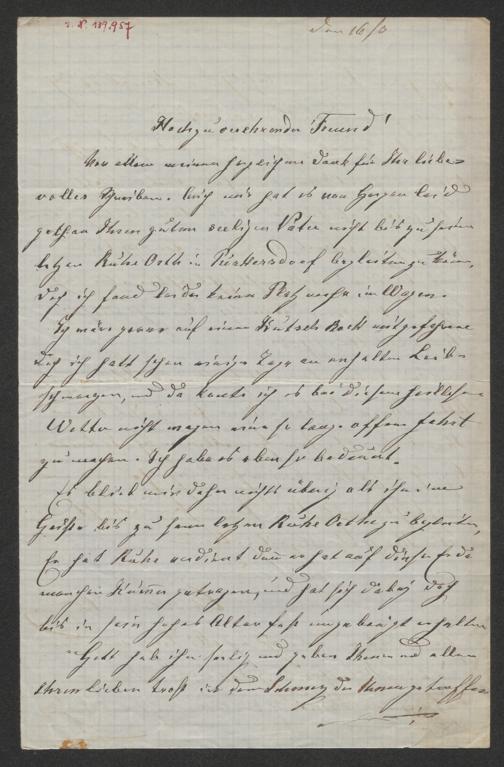 I. N. 189.957
Den 16/3
Hochzuverehrender Freund!
Vor allem meinen herzlichen Dank für Ihr liebe-
volles Schreiben. Auch mir hat es von Herzen leid
gethan Ihren guten seeligen Vater nicht bis zu seiner
letzen Ruhe Orth in Purkersdorf begleiten zu können,
doch ich fand leider keinen Platz mehr im Wagen.
Ich wäre gerne auf einem Kutsch Bock mitgefahren
doch ich hatt schon einige Tage an anhalten Leib-
schmerzen, und da konte ich es bei diesem
Wetter nicht wagen eine so lange offene Fahrt
zu machen. Ich habe es eben so bedauert.
Es blieb mir daher nichts übrig als ihn im
Geiste bis zu seinen letzen Ruhe Orthe zu begleiten,
Er hat Ruhe verdient den er hat auf dieser Erde
manchen Kummer getragen, und hat sich dabej doch
bis in sein hohes Alter fast ungebeugt erhalten
Gott hab ihn seelig und geben Ihnen und allen
Ihren lieben Trost in dem Schmerz der Ihnen getroffen